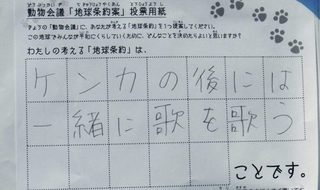 動物会議「地球条約案」投票用紙
きょうの「動物会議」に、あなたが考える「地球条約」を1つ提案してください。
この地球でみんなが平和にくらしていくために、どんなことを決めたらよいと思いますか?
わたしの考える「地球条約」は、
ケンカの後には
一緒に歌を歌う
ことです。